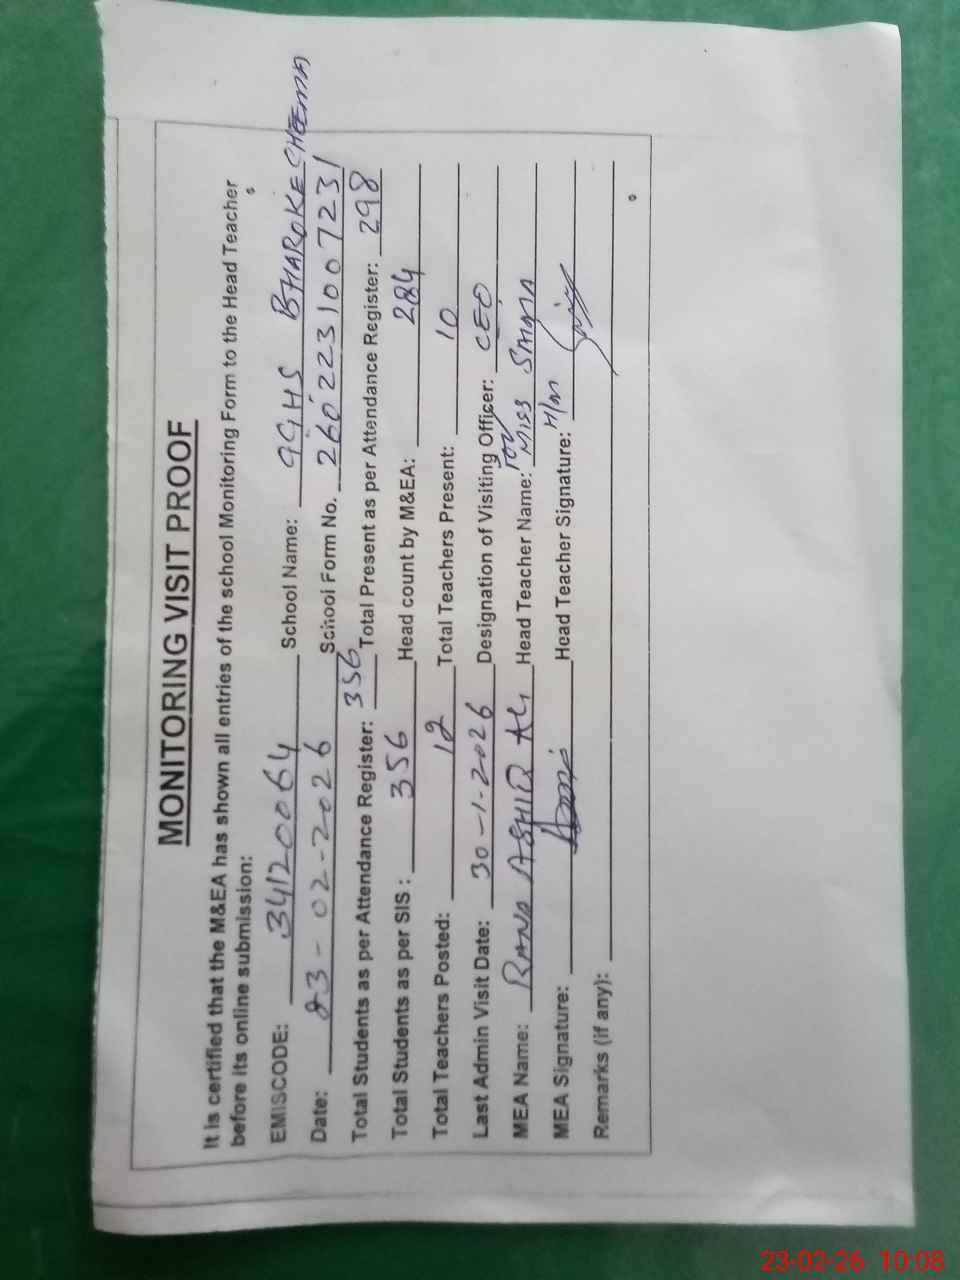 MONITORING VISIT PROOF
It is certified that the M&EA has shown all entries of the school Monitoring Form to the Head Teacher
before its online submission:
EMISCODE: 34120064 School Name: GGHS BHAROKE CHEEMA
Date: 23-02-2026 School Form No. 2602231007231
Total Students as per Attendance Register: 356 Total Present as per Attendance Register: 298
Total Students as per SIS: 356 Head count by M&EA: 284
Total Teachers Posted: 12 Total Teachers Present: 10
Last Admin Visit Date: 30-1-2026 Designation of Visiting Officer: CEO
MEA Name: RANA ASHIQ ALI Head Teacher Name: MISS
MEA Signature: Head Teacher Signature: H/M
Remarks (if any):
23-02-26 10:08